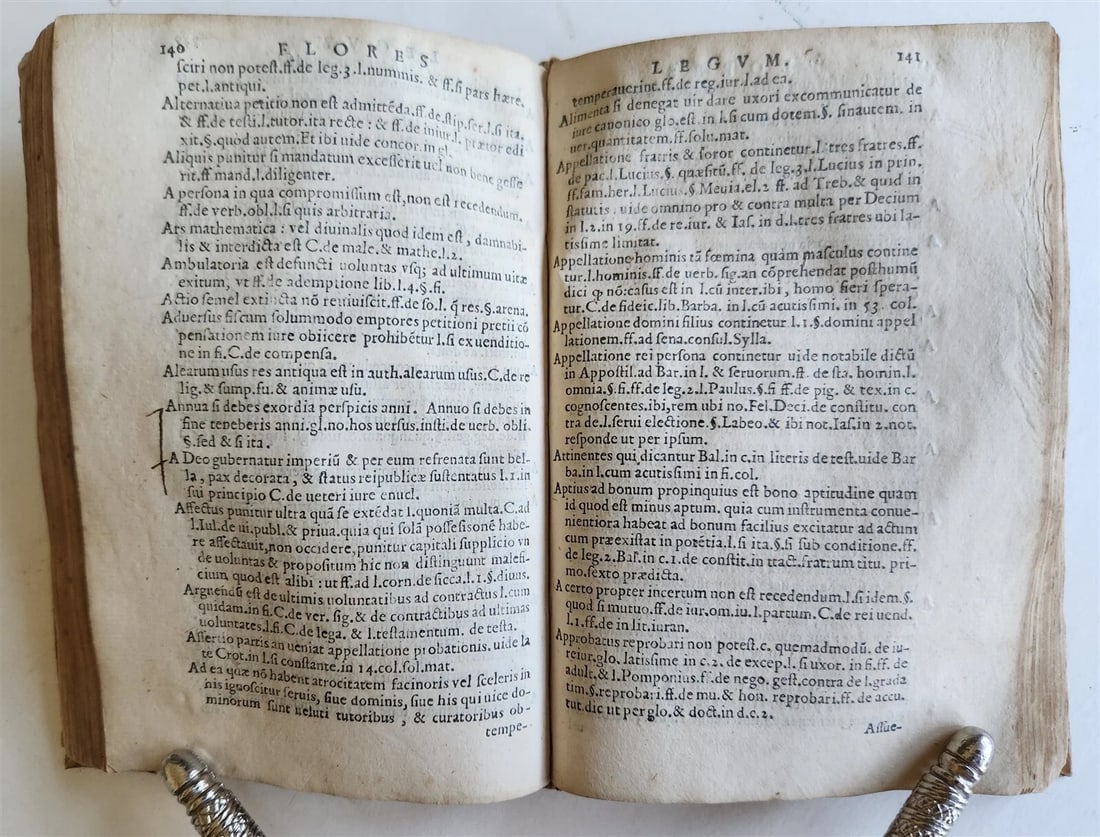 140 FLORES
sciri non potest.ff.de leg.3.l.nummis. & ff.si pars hære.
pet.l.antiqui.
Alternatiua petitio non est admittēda.ff.de stip.ser.l.si ita.
& ff.de testi.l.tutor.ita recte : & ff.de iniur.l. prætor edi
xit.§.quod autem.Et ibi uide concor.in gl.
Aliquis punitur si mandatum excesserit uel non bene gesse
rit.ff mand.l.diligenter.
A persona in qua compromissum est,non est recedendum.
ff.de verb.obl.l.si quis arbitraria.
Ars mathematica : vel diuinalis quod idem est , damnabi-
lis & interdicta est C.de male.& mathe.l.2.
Ambulatoria est defuncti uoluntas vsq; ad ultimum uitæ
exitum, vt ff.de ademptione lib.l.4.§.fi.
Actio semel extincta nō reuiuiscit.ff.de so.l. q̄ res.§.arena.
Aduersus fiscum solummodo emptores petitioni pretii cō
pensationem iure obiicere prohibētur l.si ex uenditio-
ne in fi.C.de compensa.
Alearum usus res antiqua est in auth.alearum usus.C.de re
lig.& sump.fu.& animæ usū.
Annua si debes exordia perspicis anni. Annuo si debes in
fine teneberis anni.gl.no.hos uersus.insti.de uerb. obli.
§.sed & si ita.
A Deo gubernatur imperiū & per eum refrenata sunt bel-
la, pax decorata, & status reipublicæ sustentatus l.1.in
sui principio C.de ueteri iure enucl.
Affectus punitur ultra quā se extēdat l.quoniā multa.C.ad
l.Iul.de ui.publ.& priua.quia qui solā possessionē habe-
re affectauit,non occidere,punitur capitali supplicio vn
de uoluntas & propositum hic non distinguunt malefi-
cium quod est alibi : ut ff.ad l.corn.de sicca.l.1.§.diuus.
Arguendū est de ultimis uoluntatibus ad contractus l.cum
quidam.in fi.C.de ver. sig.& de contractibus ad ultimas
uoluntates.l.fi.C.de lega. & l.testamentum. de testa.
Assertio partis an ueniat appellatione probationis. uide la
te Crot.in l.si constante.in 14.col.sol.mat.
Ad ea quæ nō habent atrocitatem facinoris vel sceleris in
nis ignoscitur seruis, siue dominis, siue his qui uice do-
minorum sunt ueluti tutoribus , & curatoribus ob-
tempe-
LEGVM. 141
temperauerint.ff.de reg.iur.l.ad ea.
Alimenta si denegat uir dare uxori excommunicatur de
iure canonico glo.est.in l.si cum dotem.§. sinautem. in
uer.quantitatem.ff.solu.mat.
Appellatione fratris & soror continetur.l.tres fratres.ff.
de pac.l.Lucius.§. quæsitū.ff. de leg.3.l.Lucius in prin.
ff.fam.her.l.Lucius.§ Meuia.el.2 ff. ad Treb.& quid in
statutis . uide omnino pro & contra multa per Decium
in l.2.in 19.ff.de re.iur. & Ias. in d.l.tres fratres ubi la-
tissime limitat.
Appellatione hominis tā fœmina quàm masculus contine
tur.l.hominis.ff.de uerb. sig.an cōprehendat posthumū
dici ꝙ nō:casus est in l.cū inter.ibi , homo fieri spera-
tur.C.de fideic.lib.Barba. in l.cū acutissimi. in 53. col.
Appellatione domini filius continetur l.1.§.domini appel
lationem.ff.ad sena.consul.Sylla.
Appellatione rei persona continetur uide notabile dictū
in Appostil.ad Bar.in l. & seruorum.ff.de sta. homin.l.
omnia.§.fi.ff.de leg.2.l.Paulus.§.fi ff.de pig. & tex.in c.
cognoscentes.ibi,rem ubi no.Fel.Deci.de constitu. con
tra de.l.serui electione.§.Labeo.& ibi not.Ias.in 2.not.
responde ut per ipsum.
Attinentes qui dicantur Bal.in c.in literis de test.uide Bar
ba.in l.cum acutissimi in fi.col.
Aptius ad bonum propinquius est bono aptitudine quam
id quod est minus aptum. quia cum instrumenta conue-
nientiora habeat ad bonum facilius excitatur ad actum
cum præexistat in potētia.l.si ita.§.si sub conditione.ff.
de leg.2.Bal.in c.1.de constit.in tract.fratrum titu. pri-
mo.sexto prædicta.
A certo propter incertum non est recedendum.l.si idem.§.
quod si mutuo.ff.de iur.om.iu.l.partum.C.de rei uend.
l.1.ff.de in lit.iuran.
Approbatus reprobari non potest.c. quemadmodū. de iu-
reiur.glo. latissime in c.2. de excep.l.si uxor. in fi.ff.de
adult.& l.Pomponius.ff.de nego. gest.contra de l.grada
tim.§.reprobari.ff.de mu.& hon. reprobari.ff. de accu.
tut.dic ut per glo.& doct.in d.c.2.
Assue-